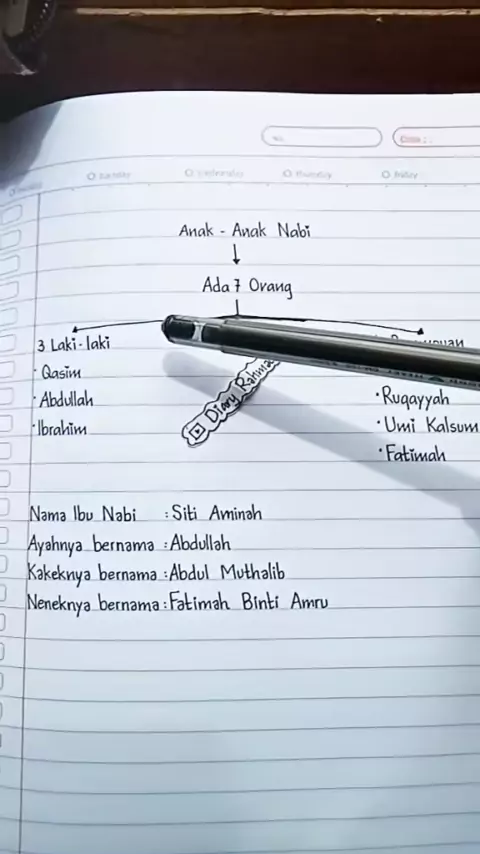 No.
Date :
Sunday
Wednesday
Thursday
Friday
Anak - Anak Nabi
Ada 7 Orang
3 Laki-laki
· Qasim
· Abdullah
· Ibrahim
Diary Rahma
· Ruqayyah
· Umi Kalsum
· Fatimah
Nama Ibu Nabi : Siti Aminah
Ayahnya bernama : Abdullah
Kakeknya bernama : Abdul Muthalib
Neneknya bernama : Fatimah Binti Amru